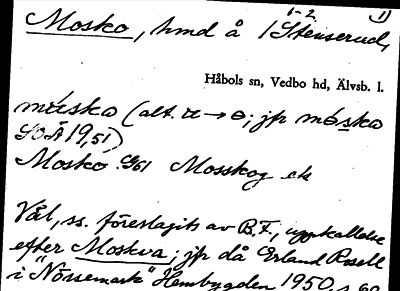 6-2. 1)
Mosko, hmd å 1 Stenserud,
Håbols sn, Vedbo hd, Älvsb. l.
måska (alt. → ɵ; jfr
SOÄ 19,51)
Mosko G61 Mosskog ek
Väl, ss. föreslagits av B.F., uppkallelse
efter Moskva; jfr då Erland Rosell
i "Nössemark" Hembygden 1950, s.